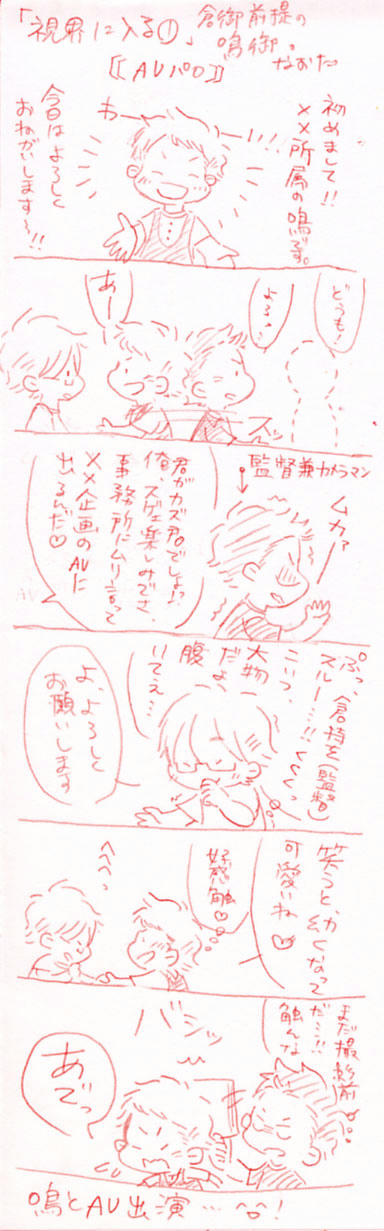 「視界に入る①」
倉御前提の
鳴御。
なおた
〚AVパロ〛
初めまして!!
××所属の鳴です。
わーい!!
今日はよろしく
おねがいします〜!!
どうも!
よろ…
あー
ズイッ
監督兼カメラマン
ムカァ
君がカズ君でしょ!?
俺、スゲェ楽しみでさ、
事務所にムリ言って
××企画のAVに
出るんだ♡
ぷっ、倉持を(監督)
スルー…!!くくくっ
こいつ、
大物
だよ、
腹
いてぇ…
よ、よろしく
お願いします
笑うと、幼くなって
可愛いね♡
好感触♡
へへへっ
まだ撮影前
だ…!!
触んな
バシッ
あでっ
鳴とAV出演…!